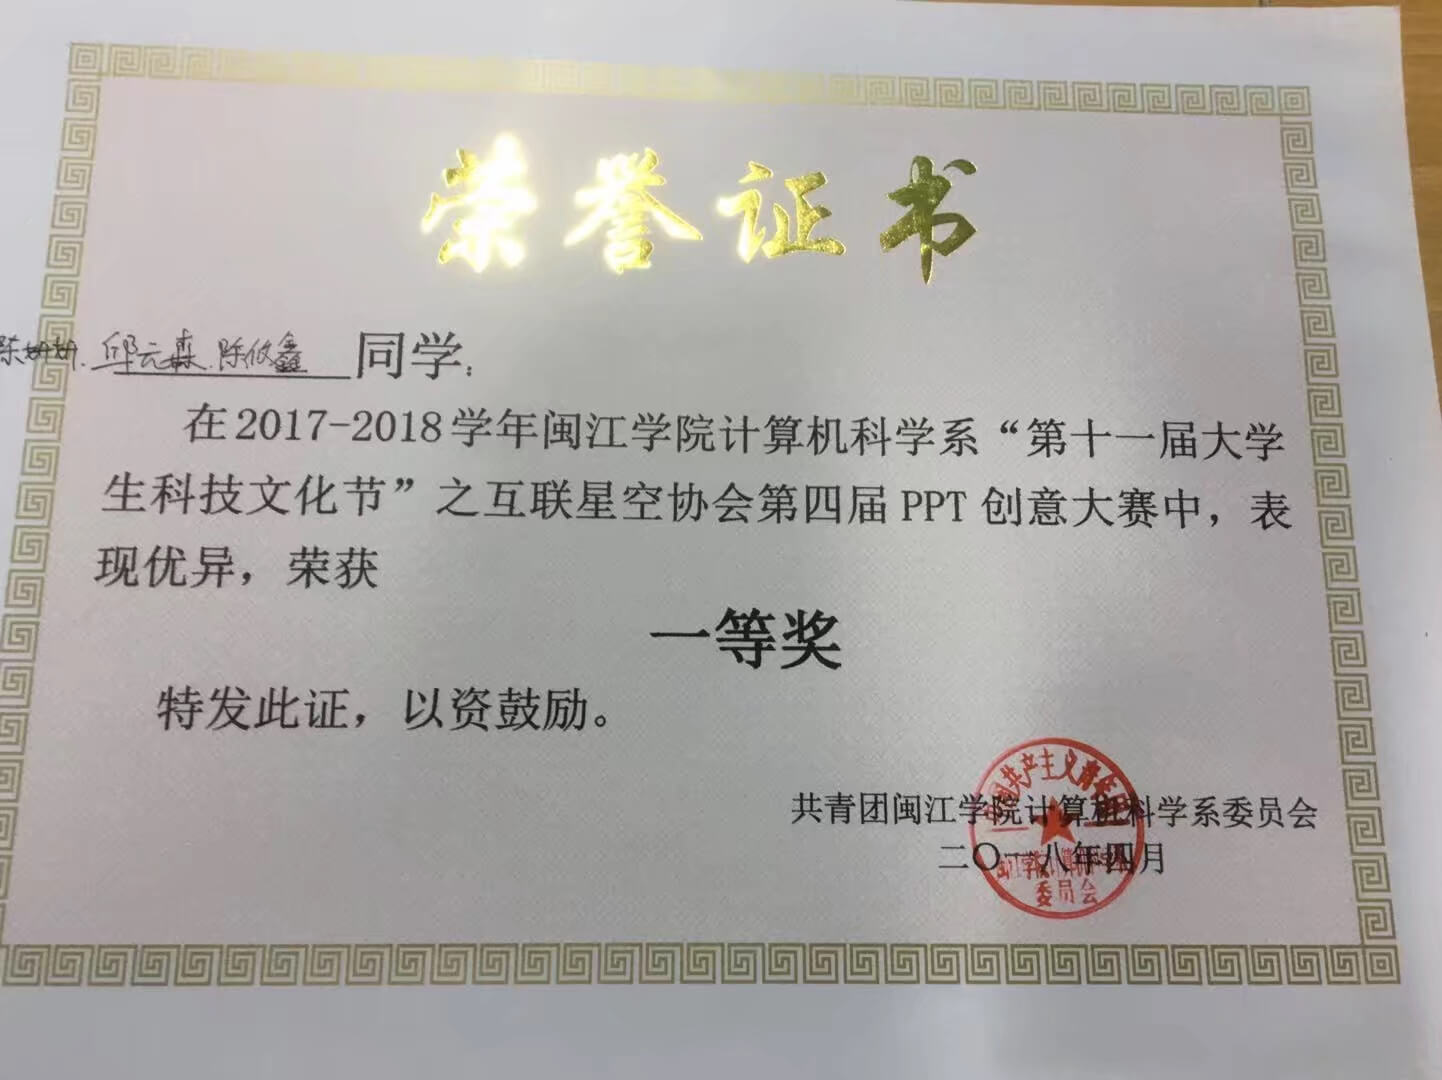 荣誉证书
陈妍妍.邱云森.陈攸鑫 同学：
在2017-2018学年闽江学院计算机科学系“第十一届大学
生科技文化节”之互联星空协会第四届PPT创意大赛中，表
现优异，荣获
一等奖
特发此证，以资鼓励。
共青团闽江学院计算机科学系委员会
二〇一八年四月
中国共产主义青年团
闽江学院计算机科学系
委员会